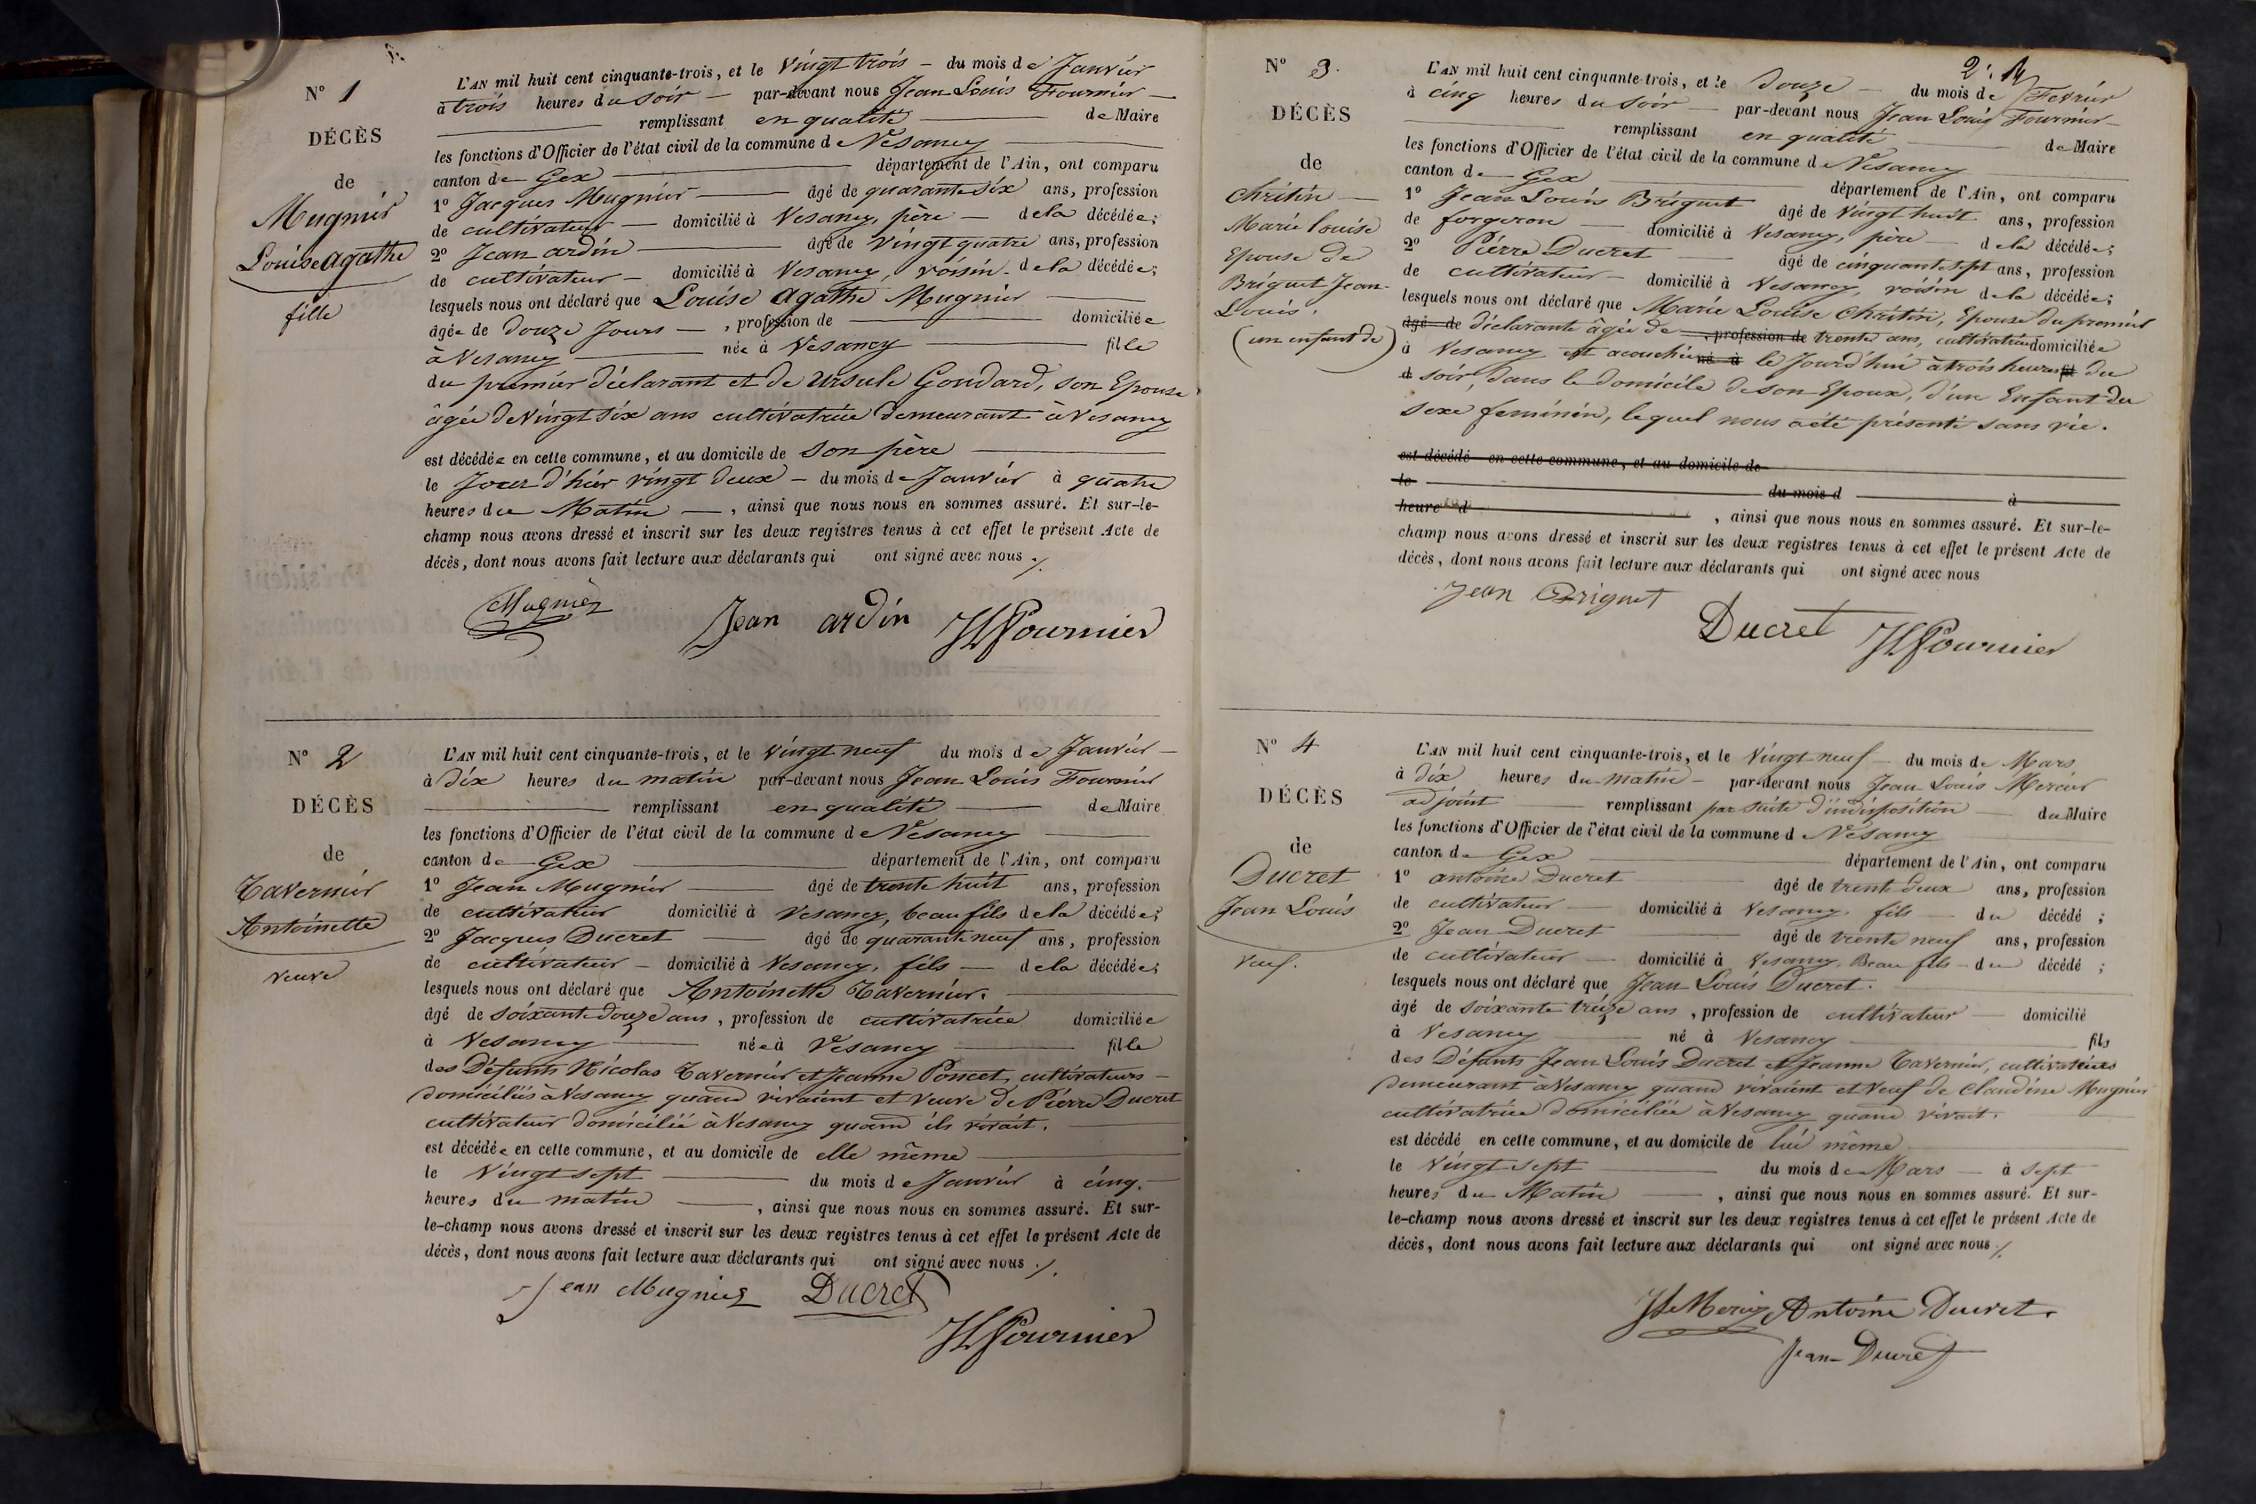 N° 1
DÉCÈS
de
Mugnier
Louise agathe
fille
L'AN mil huit cent cinquante-trois, et le Vingt trois – du mois de Janvier
à trois heures du soir – par-devant nous Jean Louis Fournier –
remplissant en qualité de Maire
les fonctions d'Officier de l'état civil de la commune de Vésancy
canton de Gex département de l'Ain, ont comparu
1° Jacques Mugnier âgé de quarante six ans, profession
de cultivateur – domicilié à Vesancy, père – de la décédée;
2° Jean ardin âgé de vingt quatre ans, profession
de cultivateur – domicilié à Vesancy, voisin - de la décédée;
lesquels nous ont déclaré que Louise Agathe Mugnier
âgée de douze Jours –, profession de domiciliée
à Vesancy née à Vesancy fille
du premier déclarant et de Ursule Goudard, son Epouse
âgée de Vingt six ans cultivatrice demeurant à Vesancy
est décédée en cette commune, et au domicile de son père
le Jour d'hier vingt deux – du mois de Janvier à quatre
heures du Matin –, ainsi que nous nous en sommes assuré. Et sur-le-
champ nous avons dressé et inscrit sur les deux registres tenus à cet effet le présent Acte de
décès, dont nous avons fait lecture aux déclarants qui ont signé avec nous ./.
Mugnier
Jean ardin JLFournier
N° 2
DÉCÈS
de
Tavernier
Antoinette
veuve
L'AN mil huit cent cinquante-trois, et le Vingt neuf du mois de Janvier –
à dix heures du matin par-devant nous Jean Louis Fournier
remplissant en qualité de Maire
les fonctions d'Officier de l'état civil de la commune de Vesancy
canton de Gex département de l'Ain, ont comparu
1° Jean Mugnier âgé de trente huit ans, profession
de cultivateur domicilié à Vesancy, beau fils de la décédée;
2° Jacques Ducret âgé de quarante neuf ans, profession
de cultivateur – domicilié à Vesancy, fils – de la décédée;
lesquels nous ont déclaré que Antoinette Tavernier.
âgé de soixante douze ans, profession de cultivatrice domiciliée
à Vesancy née à Vesancy fille
des Défunts Nicolas Tavernier et Jeanne Poncet, cultivateurs –
domiciliés à Vesancy quand vivaient et veuve de Pierre Ducret
cultivateur domicilié à Vesancy quand ils vivait.
est décédée en cette commune, et au domicile de elle même
le Vingt sept du mois de Janvier à cinq. –
heures du matin , ainsi que nous nous en sommes assuré. Et sur-
le-champ nous avons dressé et inscrit sur les deux registres tenus à cet effet le présent Acte de
décès, dont nous avons fait lecture aux déclarants qui ont signé avec nous ./.
Jean Mugnier Ducret
JLFournier
2e.
N° 3.
DÉCÈS
de
Christin –
Marie louise
Epouse de
Briguet Jean-
Louis.
(un enfant de)
L'AN mil huit cent cinquante-trois, et le douze – du mois de Fevrier
à cinq heures du soir par-devant nous Jean Louis Fournier –
remplissant en qualité de Maire
les fonctions d'Officier de l'état civil de la commune de Vésancy
canton de Gex département de l'Ain, ont comparu
1° Jean Louis Briguet âgé de Vingt huit ans, profession
de forgeron domicilié à Vesancy, père – de la décédée;
2° Pierre Ducret âgé de cinquante sept ans, profession
de cultivateur – domicilié à Vesancy, voisin de la décédée;
lesquels nous ont déclaré que Marie Louise Christin, Epouse du premier
âgé de déclarante âgée de , profession de trente ans, cultivatrice domiciliée
à Vesancy est acouchée né à le Jourd'hui à trois heures fil du
d soir, dans le domicile de son Epoux, d'un Enfant du
sexe feminin, lequel nous a été présenté sans vie.
est décédé en cette commune, et au domicile de
le du mois d à
heure d , ainsi que nous nous en sommes assuré. Et sur-le-
champ nous avons dressé et inscrit sur les deux registres tenus à cet effet le présent Acte de
décès, dont nous avons fait lecture aux déclarants qui ont signé avec nous
Jean Briguet
Ducret JLFournier
N° 4
DÉCÈS
de
Ducret
Jean Louis
veuf.
L'AN mil huit cent cinquante-trois, et le Vingt neuf – du mois de Mars
à dix heures du matin – par-devant nous Jean Louis Mercier
adjoint remplissant par suite d'indisposition du Maire
les fonctions d'Officier de l'état civil de la commune de Vésancy
canton de Gex département de l'Ain, ont comparu
1° antoine Ducret âgé de trente deux ans, profession
de cultivateur – domicilié à Vesancy, fils – du décédé ;
2° Jean Ducret âgé de trente neuf ans, profession
de cultivateur – domicilié à Vesancy, Beau fils – du décédé ;
lesquels nous ont déclaré que Jean Louis Ducret.
âgé de soixante treize ans, profession de cultivateur – domicilié
à Vesancy né à Vesancy fils
des Défunts Jean Louis Ducret et Jeanne Tavernier, cultivateurs
demeurant à Vesancy quand vivaient et Veuf de Claudine Mugnier
cultivatrice domiciliée à Vesancy quand vivait.
est décédé en cette commune, et au domicile de lui même
le Vingt sept du mois de Mars – à sept
heures du Matin , ainsi que nous nous en sommes assuré. Et sur-
le-champ nous avons dressé et inscrit sur les deux registres tenus à cet effet le présent Acte de
décès, dont nous avons fait lecture aux déclarants qui ont signé avec nous ./.
Antoine Ducret.
Jean Ducret